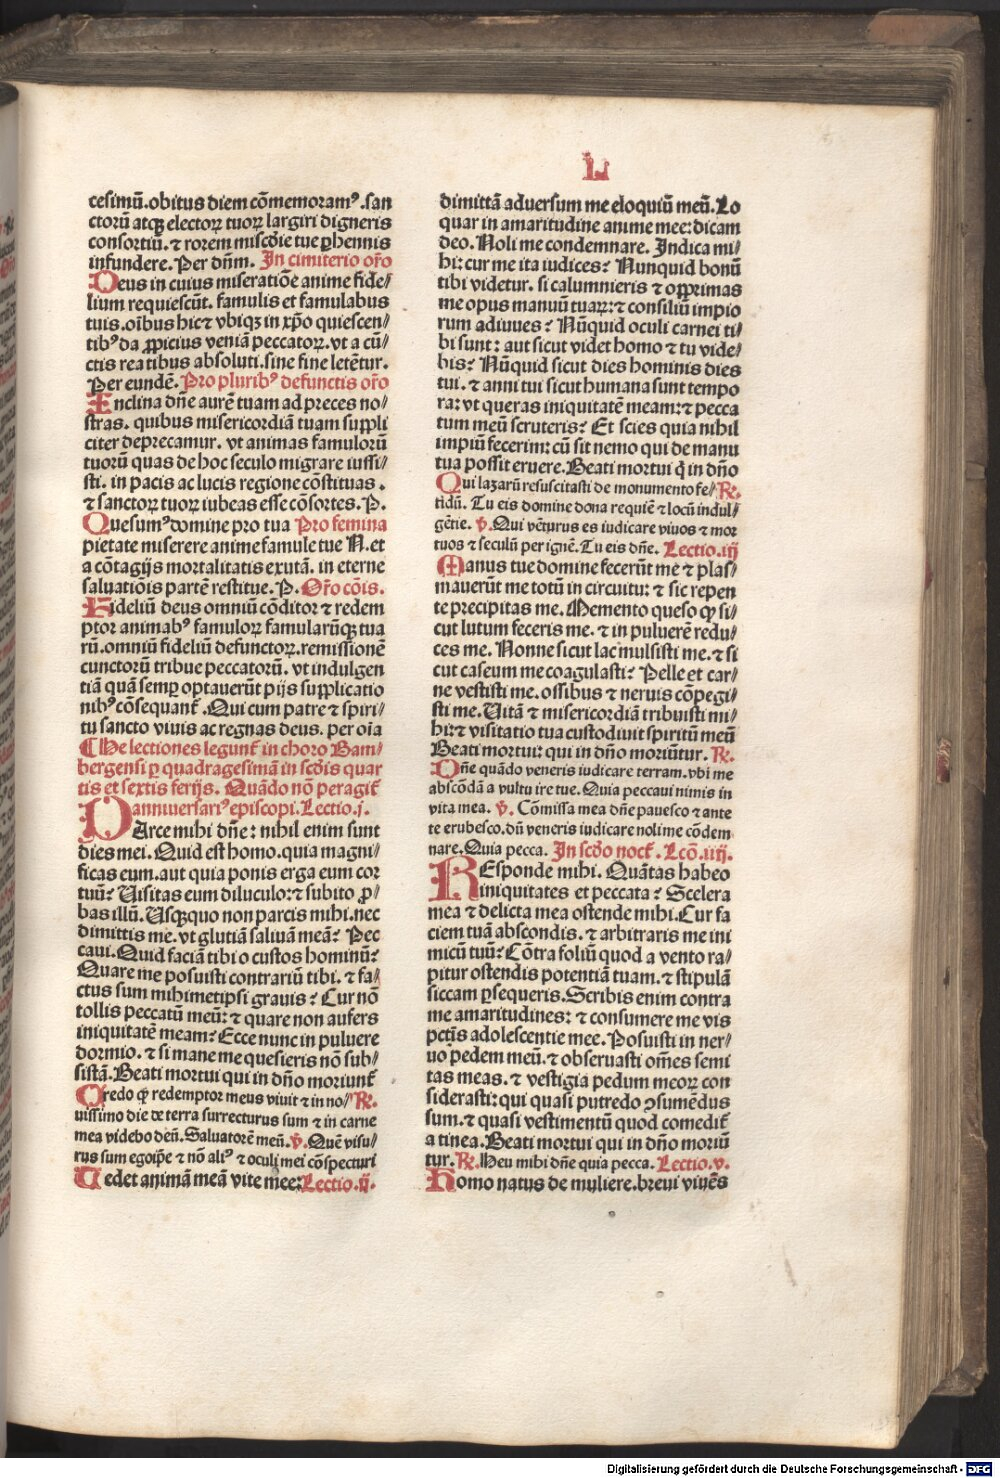 L
cesimū.obitus diem cōmemoramꝰ.san
ctorū atqꝫ electoꝝ tuoꝝ largiri digneris
consortiū.⁊ rorem miscd̓ie tue ꝑhennis
infundere.Per dn̄m. In cimiterio or̄o
Deus in cuius miseratiōe anime fide/
lium requiescūt. famulis et famulabus
tuis.oībus hic ⁊ vbiqꝫ in xp̄o quiescen/
tibꝰ da ꝓpicius veniā peccatoꝝ.vt a cū/
ctis reatibus absoluti.sine fine letētur.
Per eundē. Pro pluribꝰ defunctis or̄o
Inclina dn̄e aurē tuam ad preces no/
stras. quibus misericordiā tuam suppli
citer deprecamur. vt animas famulorū
tuorū quas de hoc seculo migrare iussi/
sti. in pacis ac lucis regione cōstituas.
⁊ sanctoꝝ tuoꝝ iubeas esse cōsortes. P.
Quesumꝰ domine pro tua Pro femina
pietate miserere anime famule tue N. et
a cōtagijs mortalitatis exutā. in eterne
saluatiōis partē restitue. P. Or̄o cōis.
Fideliū deus omniū cōditor ⁊ redem
ptor animabꝰ famuloꝝ famularūqꝫ tua
rū.omniū fideliū defunctoꝝ.remissionē
cunctorū tribue peccatorū. vt indulgen
tiā quā semꝑ optauerūt pijs supplicatio
nibꝰ cōsequant᷑. Qui cum patre ⁊ spiri/
tu sancto viuis ac regnas deus. per oīa
¶ He lectiones legunt᷑ in choro Bam/
bergensi ꝑ quadragesimā in scd̓is quar
tis et sextis ferijs. Quādo nō peragit᷑
anniuersariꝰ episcopi. Lectio.j.
PArce mihi dn̄e: nihil enim sunt
dies mei. Quid est homo. quia magni/
ficas eum. aut quia ponis erga eum cor
tuū? Uisitas eum diluculo:⁊ subito ꝓ/
bas illū. Usqꝫquo non parcis mihi. nec
dimittis me. vt glutiā saliuā meā? Pec
caui. Quid faciā tibi o custos hominū?
Quare me posuisti contrariū tibi. ⁊ fa/
ctus sum mihimetipsi grauis? Cur nō
tollis peccatū meū: ⁊ quare non aufers
iniquitatē meam? Ecce nunc in puluere
dormio. ⁊ si mane me quesieris nō sub/
sistā. Beati mortui qui in dn̄o moriunt᷑
Credo ꝙ redemptor meus viuit ⁊ in no/ ℟.
uissimo die de terra surrecturus sum ⁊ in carne
mea videbo deū. Saluatorē meū. ℣. Quē visu/
rus sum ego ip̄e ⁊ nō aliꝰ ⁊ oculi mei cōspecturi
Tedet animā meā vite mee: Lectio.ij.
dimittā aduersum me eloquiū meū. Lo
quar in amaritudine anime mee: dicam
deo. Noli me condemnare. Indica mi/
hi: cur me ita iudices? Nunquid bonū
tibi videtur. si calumnieris ⁊ opprimas
me opus manuū tuaꝝ: ⁊ consiliū impio
rum adiuues? Nūquid oculi carnei ti/
bi sunt: aut sicut videt homo ⁊ tu vide/
bis? Nūquid sicut dies hominis dies
tui. ⁊ anni tui sicut humana sunt tempo
ra: vt queras iniquitatē meam: ⁊ pecca
tum meū scruteris? Et scies quia nihil
impiū fecerim: cū sit nemo qui de manu
tua possit eruere. Beati mortui q̇ in dn̄o
Qui lazarū resuscitasti de monumento fe/ ℟.
tidū. Tu eis domine dona requiē ⁊ locū indul/
gētie. ℣. Qui vēturus es iudicare viuos ⁊ mor
tuos ⁊ seculū per ignē. Tu eis dn̄e. Lectio.iij
Manus tue domine fecerūt me ⁊ plas/
mauerūt me totū in circuitu: ⁊ sic repen
te precipitas me. Memento queso ꝙ si/
cut lutum feceris me. ⁊ in puluerē redu/
ces me. Nonne sicut lac mulsisti me. ⁊ si
cut caseum me coagulasti? Pelle et car/
ne vestisti me. ossibus ⁊ neruis cōpegi/
sti me. Uitā ⁊ misericordiā tribuisti mi/
hi: ⁊ visitatio tua custodiuit spiritū meū
Beati mortui: qui in dn̄o moriūtur. ℟.
Dn̄e quādo veneris iudicare terram. vbi me
abscōdā a vultu ire tue. Quia peccaui nimis in
vita mea. ℣. Cōmissa mea dn̄e pauesco ⁊ ante
te erubesco. dū veneris iudicare noli me cōdem
nare. Quia pecca. In scd̓o noct᷑. Lcō.iiij.
REsponde mihi. Quātas habeo
iniquitates et peccata? Scelera
mea ⁊ delicta mea ostende mihi. Cur fa
ciem tuā abscondis. ⁊ arbitraris me ini
micū tuū? Cōtra foliū quod a vento ra/
pitur ostendis potentiā tuam. ⁊ stipulā
siccam ꝑsequeris. Scribis enim contra
me amaritudines: ⁊ consumere me vis
pctīs adolescentie mee. Posuisti in ner/
uo pedem meū. ⁊ obseruasti om̄es semi
tas meas. ⁊ vestigia pedum meoꝝ con
siderasti: qui quasi putredo ꝯsumēdus
sum. ⁊ quasi vestimentū quod comedit᷑
a tinea. Beati mortui qui in dn̄o moriū
tur. ℟. Heu mihi dn̄e quia pecca. Lectio.v.
Homo natus de muliere. breui viuēs
Digitalisierung gefördert durch die Deutsche Forschungsgemeinschaft - DFG